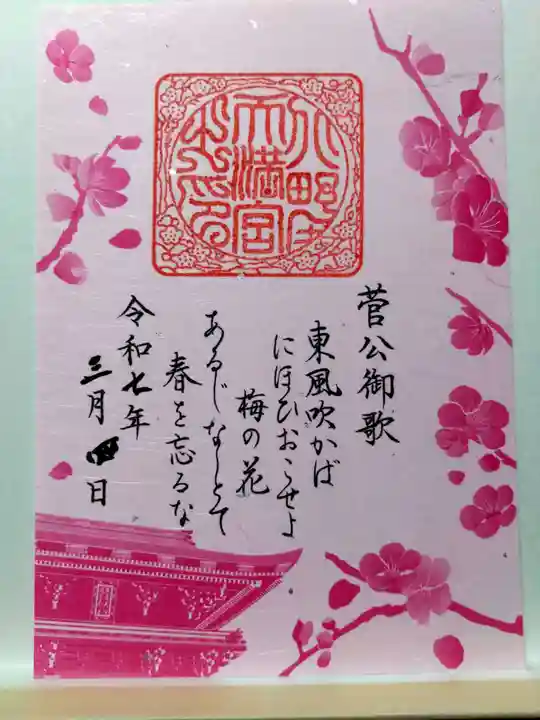 天満宮
菅公御歌
東風吹かば
にほひおこせよ
梅の花
あるじなしとて
春を忘るな
令和七年
三月 日